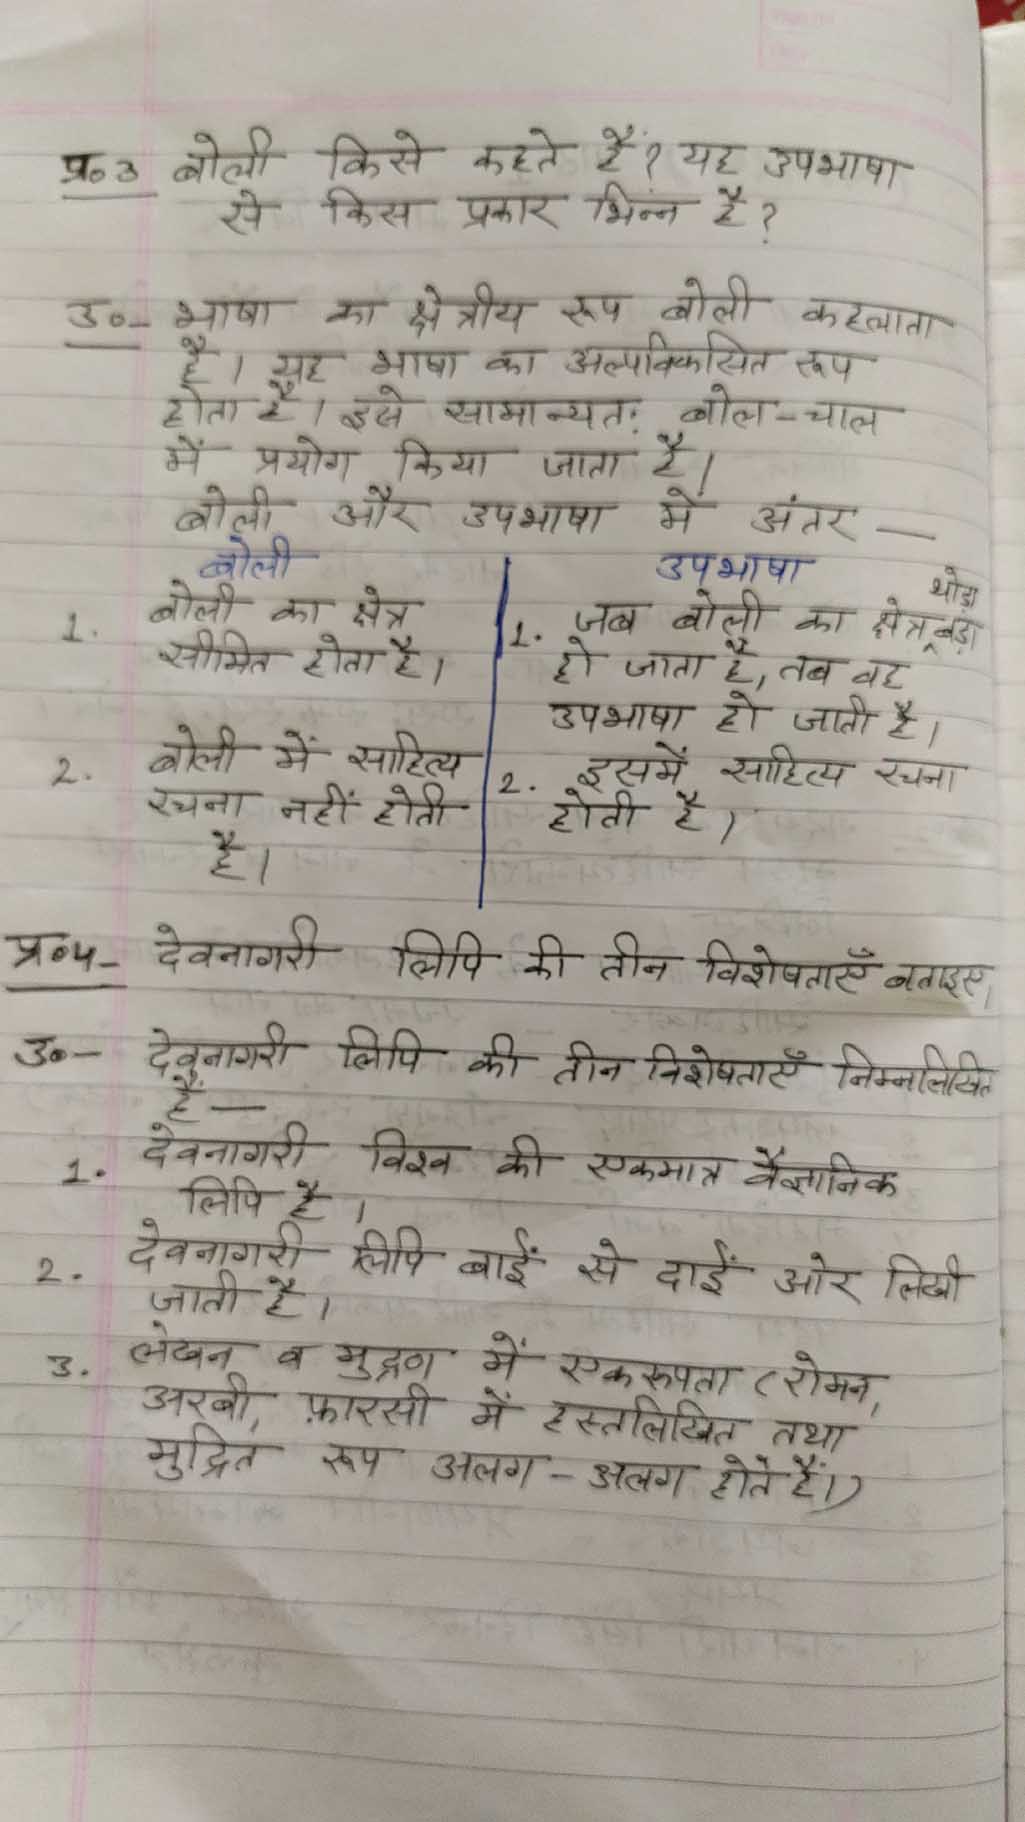 प्र०3 बोली किसे कहते हैं? यह उपभाषा
से किस प्रकार भिन्न है?
उ०- भाषा का क्षेत्रीय रूप बोली कहलाता
है। यह भाषा का अल्पविकसित रूप
होता है। इसे सामान्यत: बोल-चाल
में प्रयोग किया जाता है।
बोली और उपभाषा में अंतर —
बोली
1. बोली का क्षेत्र
सीमित होता है।
2. बोली में साहित्य
रचना नहीं होती
है।
उपभाषा
1. जब बोली का क्षेत्र थोड़ा बड़ा
हो जाता है, तब वह
उपभाषा हो जाती है।
2. इसमें साहित्य रचना
होती है।
प्र०4- देवनागरी लिपि की तीन विशेषताएँ बताइए।
उ०- देवनागरी लिपि की तीन विशेषताएँ निम्नलिखित
हैं —
1. देवनागरी विश्व की एकमात्र वैज्ञानिक
लिपि है।
2. देवनागरी लिपि बाईं से दाईं ओर लिखी
जाती है।
3. लेखन व मुद्रण में एकरूपता (रोमन,
अरबी, फ़ारसी में हस्तलिखित तथा
मुद्रित रूप अलग-अलग होते हैं।)